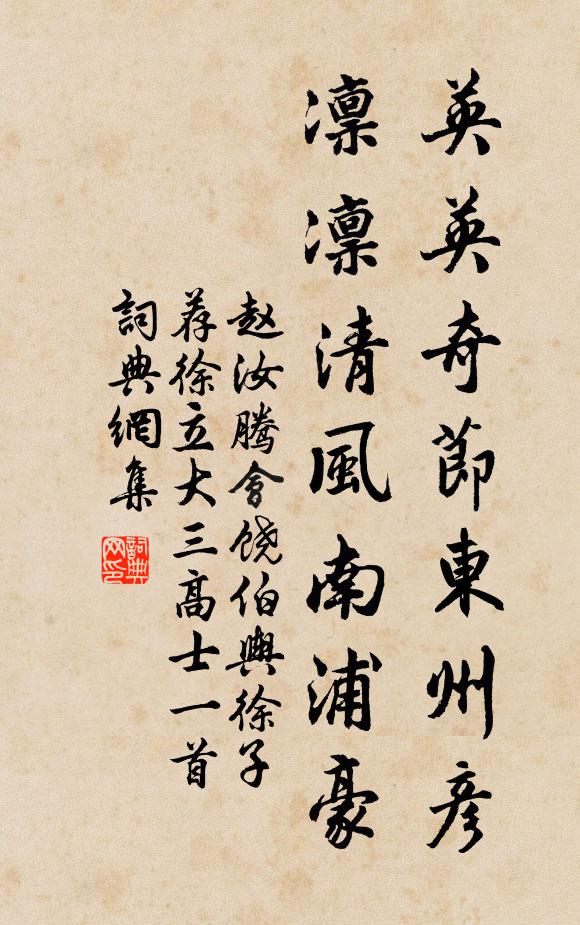 英英奇節東州彦
凛凛清風南浦豪
赵汝腾會饶伯輿徐子
荐徐立大三高士一首
詞典網集
詞典网印